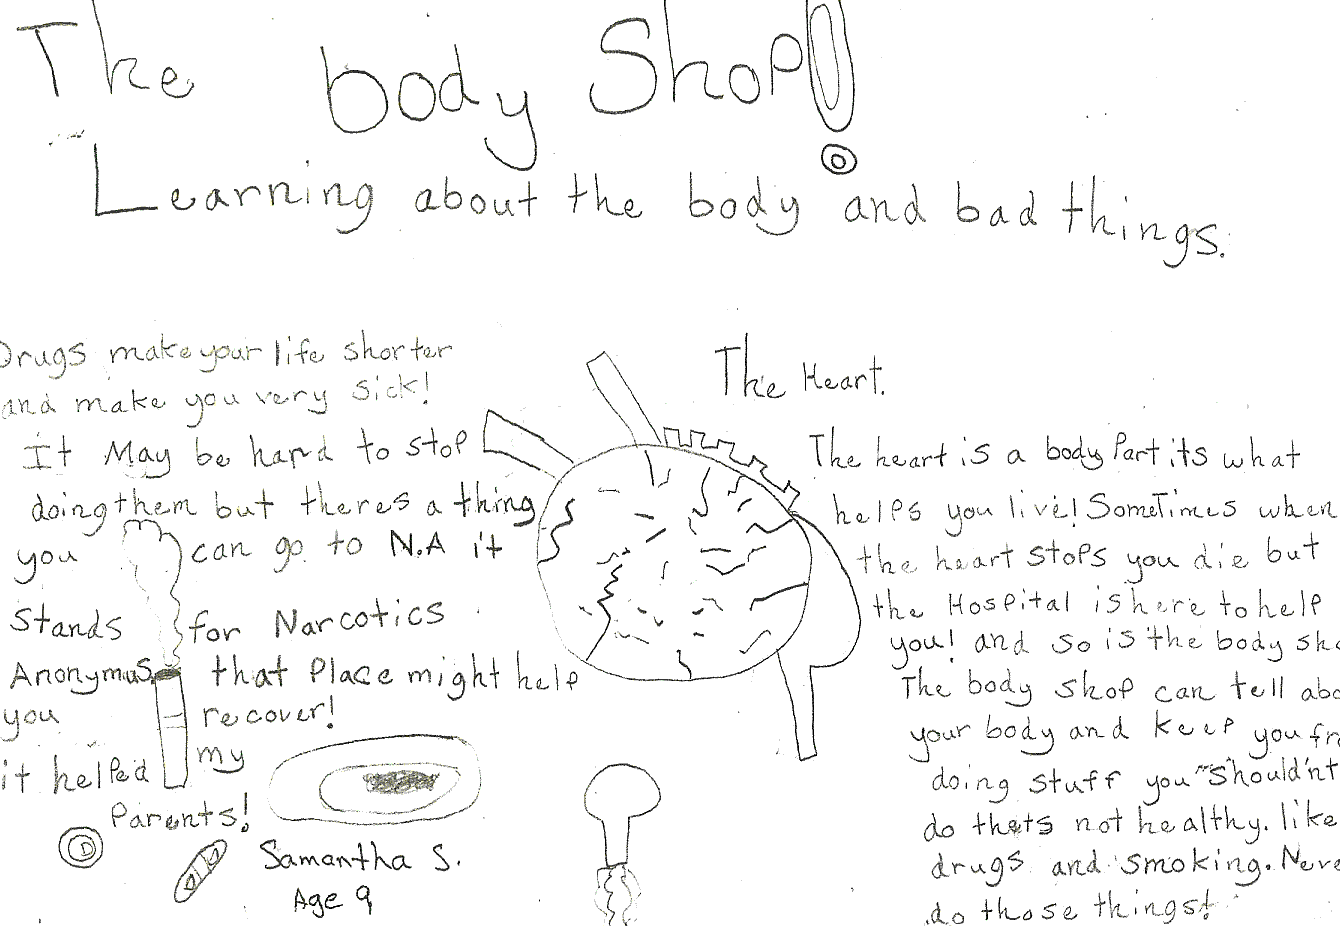 The body Shop!
Learning about the body and bad things.
Drugs make your life shorter
and make you very sick!
It May be hard to stop
doing them but theres a thing
you can go to N.A it
Stands for Narcotics
Anonymus, that Place might help
you recover!
it helped my
Parents!
Samantha S.
Age 9
The Heart.
The heart is a body Part its what
helps you live! SomeTimes when
the heart stops you die but
the Hospital is here to help
you! and so is the body sho
The body shop can tell abo
your body and keep you fr
doing stuff you "shouldn't
do thats not healthy. like
drugs and smoking. Neve
do those things!